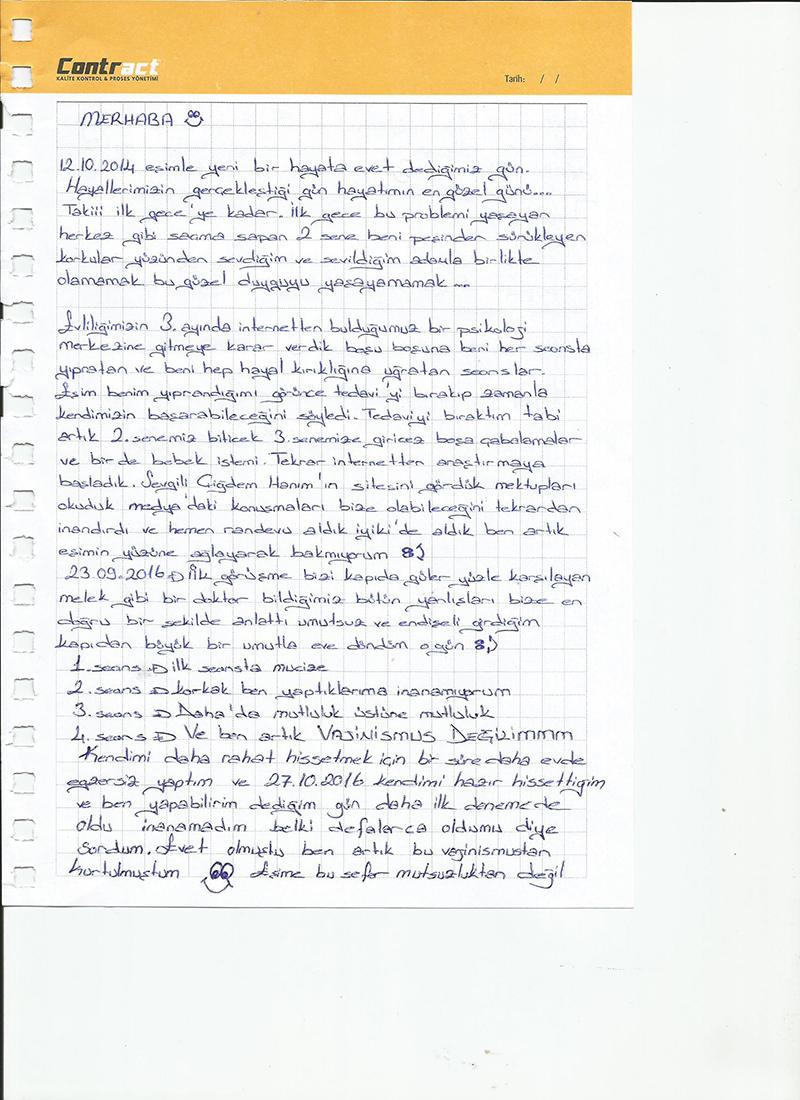 Contract
KALİTE KONTROL & PROSES YÖNETİMİ
Tarih: / /
MERHABA
12.10.2014 eşimle yeni bir hayata evet dediğimiz gün.
Hayallerimizin gerçekleştiği gün hayatımın en güzel günü....
Takiii ilk gece'ye kadar. İlk gece bu problemi yaşayan
herkez gibi saçma sapan 2 sene beni peşinden sürükleyen
korkular yüzünden sevdiğim ve sevildiğim adamla birlikte
olamamak bu güzel duyguyu yaşayamamak ...
Evliliğimizin 3. ayında internetten bulduğumuz bir psikoloji
merkezine gitmeye karar verdik boşu boşuna beni her seansta
yıpratan ve beni hep hayal kırıklığına uğratan seanslar.
Eşim benim yıprandığımı görünce tedavi'yi bırakıp zamanla
kendimizin başarabileceğini söyledi. Tedaviyi bıraktım tabi
artık 2. senemiz biticek 3. senemize giricez boşa çabalamalar
ve bir de bebek istemi. Tekrar internetten araştırmaya
başladık. Sevgili Çiğdem Hanım'ın sitesini gördük mektupları
okuduk medya'daki konuşmaları bize olabileceğini tekrardan
inandırdı ve hemen randevu aldık iyiki'de aldık ben artık
eşimin yüzüne ağlayarak bakmıyorum 8)
23.09.2016 → İlk görüşme bizi kapıda güler yüzle karşılayan
melek gibi bir doktor bildiğimiz bütün yanlışları bize en
doğru bir şekilde anlattı umutsuz ve endişeli girdiğim
kapıdan büyük bir umutla eve döndüm o gün 8)
1. seans → ilk seansta mucize
2. seans → korkak ben yaptıklarıma inanamıyorum
3. seans → Daha'da mutluluk üstüne mutluluk
4. seans → Ve ben artık VAJİNİSMUS DEĞİLİMMM
Kendimi daha rahat hissetmek için bir süre daha evde
egzersiz yaptım ve 27.10.2016 kendimi hazır hissettiğim
ve ben yapabilirim dediğim gün daha ilk denemede
oldu inanamadım belki defalarca oldumu diye
sordum. Evet olmuştu ben artık bu vajinismustan
kurtulmuştum Eşime bu sefer mutsuzluktan değil